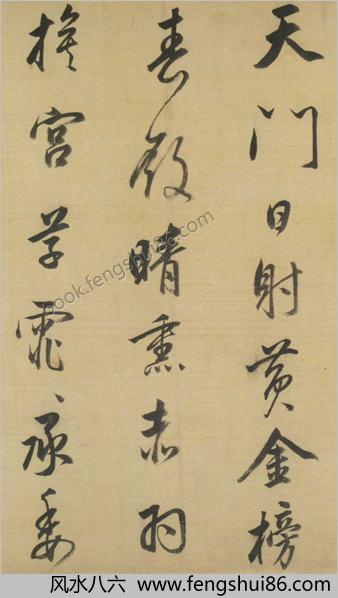 天門日射黃金榜
春殿晴熏赤羽
旗宮草霏〻承委
book.fengshui86.com
风水八六 www.fengshui86.com